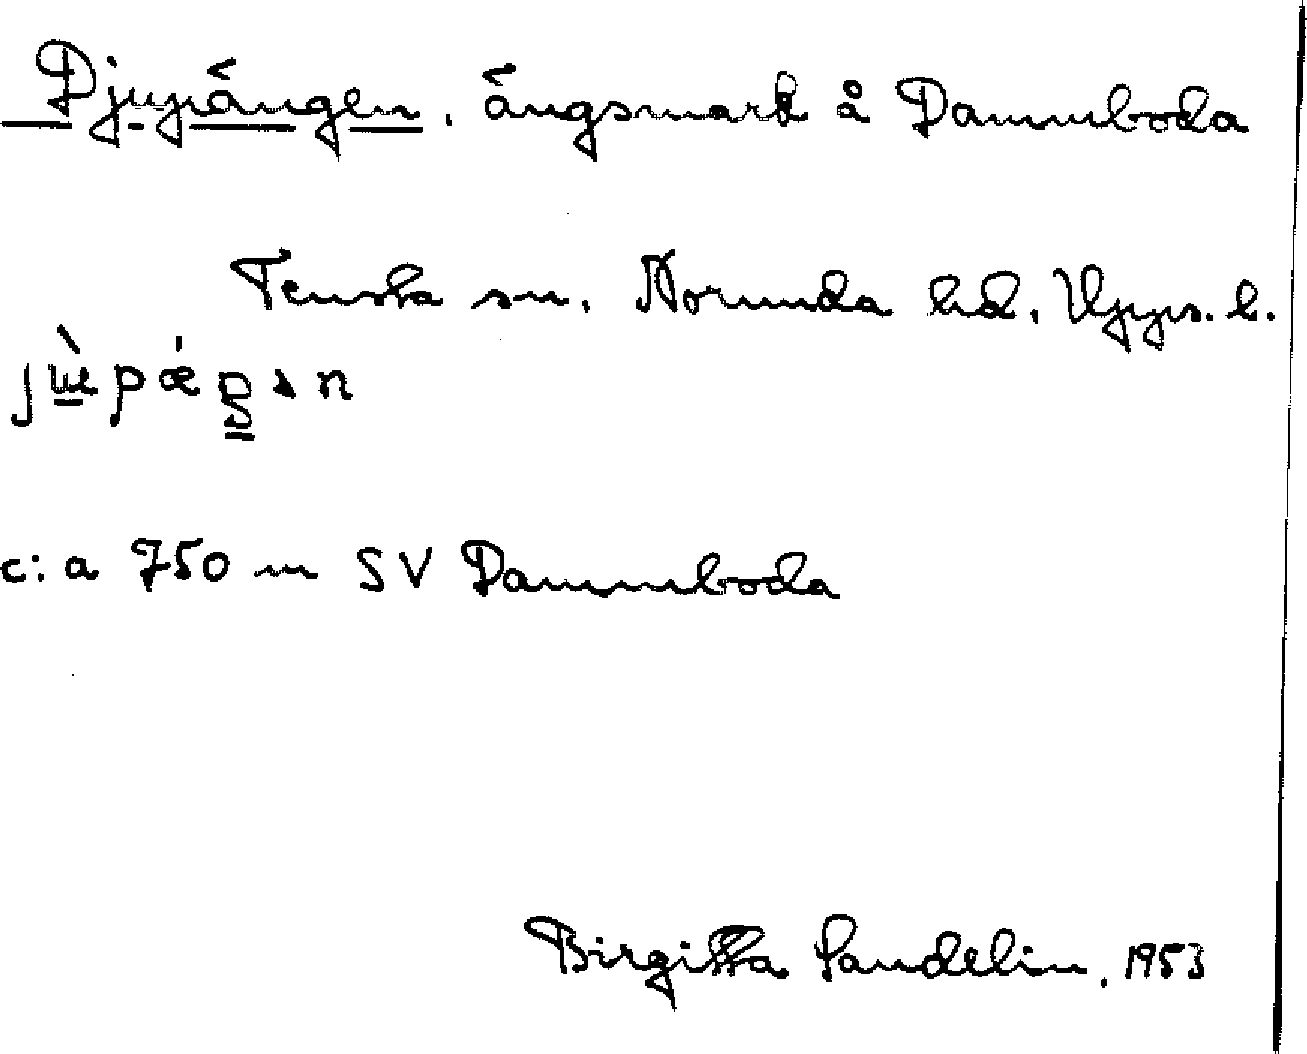 Djupängen, ängsmark å Dammboda
Tensta sn. Norunda hd. Upps. l.
c:a 750 m SV Dammboda
Birgitta Sandelin, 1953